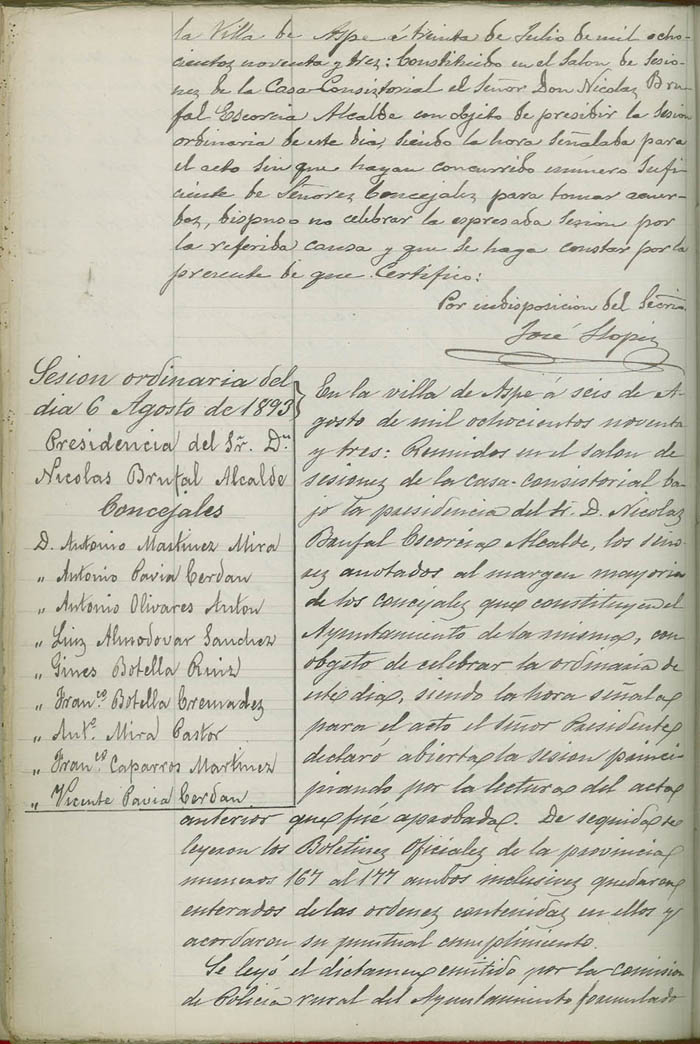 la Villa de Aspe á treinta de Julio de mil ocho-
cientos noventa y tres: Constituido en el Salon de Sesio-
nes de la Casa Consistorial el Señor Don Nicolas Bru-
fal Escorcia Alcalde con objeto de presidir la sesion
ordinaria de este dia, siendo la hora señalada para
el acto sin que hayan concurrido número sufi-
ciente de Señores Concejales para tomar acuer-
dos, dispuso no celebrar la espresada sesion por
la referida causa y que se haga constar por la
presente de que Certifico:
Por indisposicion del Secrio.
José Llopiz
Sesion ordinaria del
dia 6 Agosto de 1893
Presidencia del Sr. Dn
Nicolas Brufal Alcalde
Concejales
D. Antonio Martinez Mira
„ Antonio Pavia Cerdan
„ Antonio Olivares Anton
„ Luiz Almodovar Sanchez
„ Gines Botella Ruiz
„ Franco. Botella Cremadez
„ Anto. Mira Castor
„ Franco. Caparros Martinez
„ Vicente Pavia Cerdan
En la villa de Aspe á seis de A-
gosto de mil ochocientos noventa
y tres: Reunidos en el salon de
sesiones de la casa-consistorial ba-
jo la presidencia del Sr. D. Nicolas
Brufal Escorcia Alcalde, los seño-
res anotados al margen mayoria
de los concejales que constituyen el
Ayuntamiento de la misma, con
obgeto de celebrar la ordinaria de
este dia, siendo la hora señala
para el acto el Señor Presidente
declaró abierta la sesion princi-
piando por la lectura del acta
anterior que fué aprobada. De seguida se
leyeron los Boletines Oficiales de la provincia
numeros 167 al 177 ambos inclusives quedaron
enterados de las ordenes contenidas en ellos y
acordaron su puntual cumplimiento.
Se leyó el dictamen emitido por la comision
de Policia rural del Ayuntamiento formulado